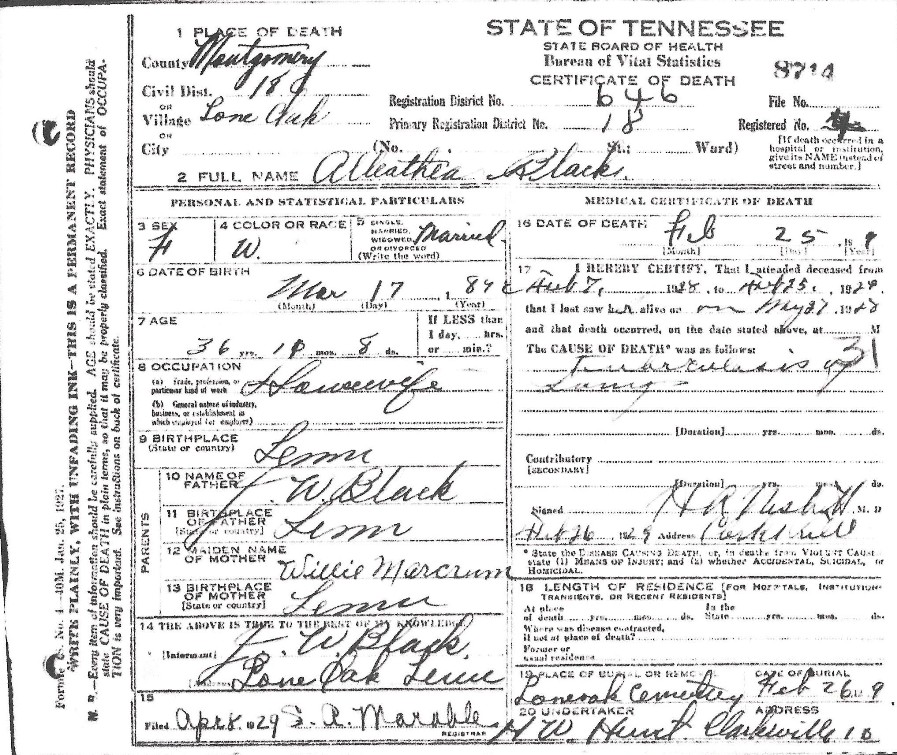 STATE OF TENNESSEE
STATE BOARD OF HEALTH
Bureau of Vital Statistics
CERTIFICATE OF DEATH
8714
1 PLACE OF DEATH
County Montgomery
Civil Dist. 18
OR
Village Lone Oak
OR
City (No. St.; Ward)
Registration District No. 646 File No.
Primary Registration District No. 18 Registered No.
[If death occurred in a hospital or institution, give its NAME instead of street and number.]
2 FULL NAME Alleathea Black
PERSONAL AND STATISTICAL PARTICULARS
3 SEX F
4 COLOR OR RACE W.
5 SINGLE, MARRIED, WIDOWED, OR DIVORCED (Write the word) Married
6 DATE OF BIRTH
Mar 17 189
(Month) (Day) (Year)
7 AGE
36 yrs. mos. 8 ds.
If LESS than 1 day, hrs. or min.?
8 OCCUPATION
(a) Trade, profession, or particular kind of work Housewife
(b) General nature of industry, business, or establishment in which employed (or employer)
9 BIRTHPLACE
(State or country) Tenn
PARENTS
10 NAME OF FATHER J. W. Black
11 BIRTHPLACE OF FATHER
(State or country) Tenn
12 MAIDEN NAME OF MOTHER Willie Marcrum
13 BIRTHPLACE OF MOTHER
(State or country) Tenn
14 THE ABOVE IS TRUE TO THE BEST OF MY KNOWLEDGE
(Informant) J. W. Black
(Address) Lone Oak Tenn
15
Filed Apr 8, 1929 S. A. Marable
REGISTRAR
MEDICAL CERTIFICATE OF DEATH
16 DATE OF DEATH Feb 25 19 9
(Month) (Day) (Year)
17 I HEREBY CERTIFY, That I attended deceased from
Feb 7, 1928, to Feb 25, 1929,
that I last saw her alive on May 27 1928
and that death occurred, on the date stated above, at M
The CAUSE OF DEATH* was as follows:
31
Tuberculosis of
Lung
(Duration) yrs. mos. ds.
Contributory
[SECONDARY]
(Duration) yrs. mos. ds.
Signed H R M. D
Feb 26 1929 Address
* State the DISEASE CAUSING DEATH, or, in deaths from VIOLENT CAUSE, state (1) MEANS OF INJURY; and (2) whether ACCIDENTAL, SUICIDAL, or HOMICIDAL.
18 LENGTH OF RESIDENCE [FOR HOSPITALS, INSTITUTION
TRANSIENTS, OR RECENT RESIDENTS]
At place In the
of death yrs. mos. ds. State yrs. mos. ds.
Where was disease contracted,
if not at place of death?
Former or
usual residence
19 PLACE OF BURIAL OR REMOVAL DATE OF BURIAL
Loneoak Cemetery Feb 26 9
20 UNDERTAKER ADDRESS
H W. Hunt Clarksville
No. 4—40M. Jan. 25, 1927.
WRITE PLAINLY, WITH UNFADING INK—THIS IS A PERMANENT RECORD
N. B.—Every item of information should be carefully supplied. AGE should be stated EXACTLY. PHYSICIANS should
state CAUSE OF DEATH in plain terms, so that it may be properly classified. Exact statement of OCCUPA-
TION is very important. See instructions on back of certificate.